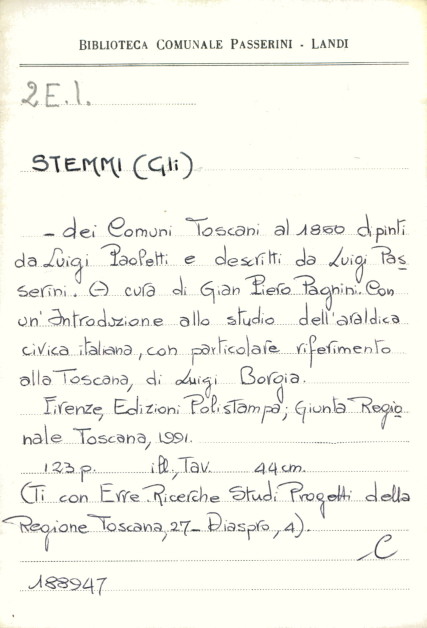 BIBLIOTECA COMUNALE PASSERINI - LANDI
2E.1.
STEMMI (Gli)
- dei Comuni Toscani al 1860 dipinti
da Luigi Paoletti e descritti da Luigi Pas=
serini. (A) cura di Gian Piero Pagnini. Con
un' Introduzione allo studio dell'araldica
civica italiana, con particolare riferimento
alla Toscana, di Luigi Borgia.
Firenze, Edizioni Polistampa; Giunta Regio
nale Toscana, 1991.
123 p. ill., Tav. 44 cm.
(Ti con Erre. Ricerche Studi Progetti della
Regione Toscana, 27 - Diaspro, 4).
C
188947